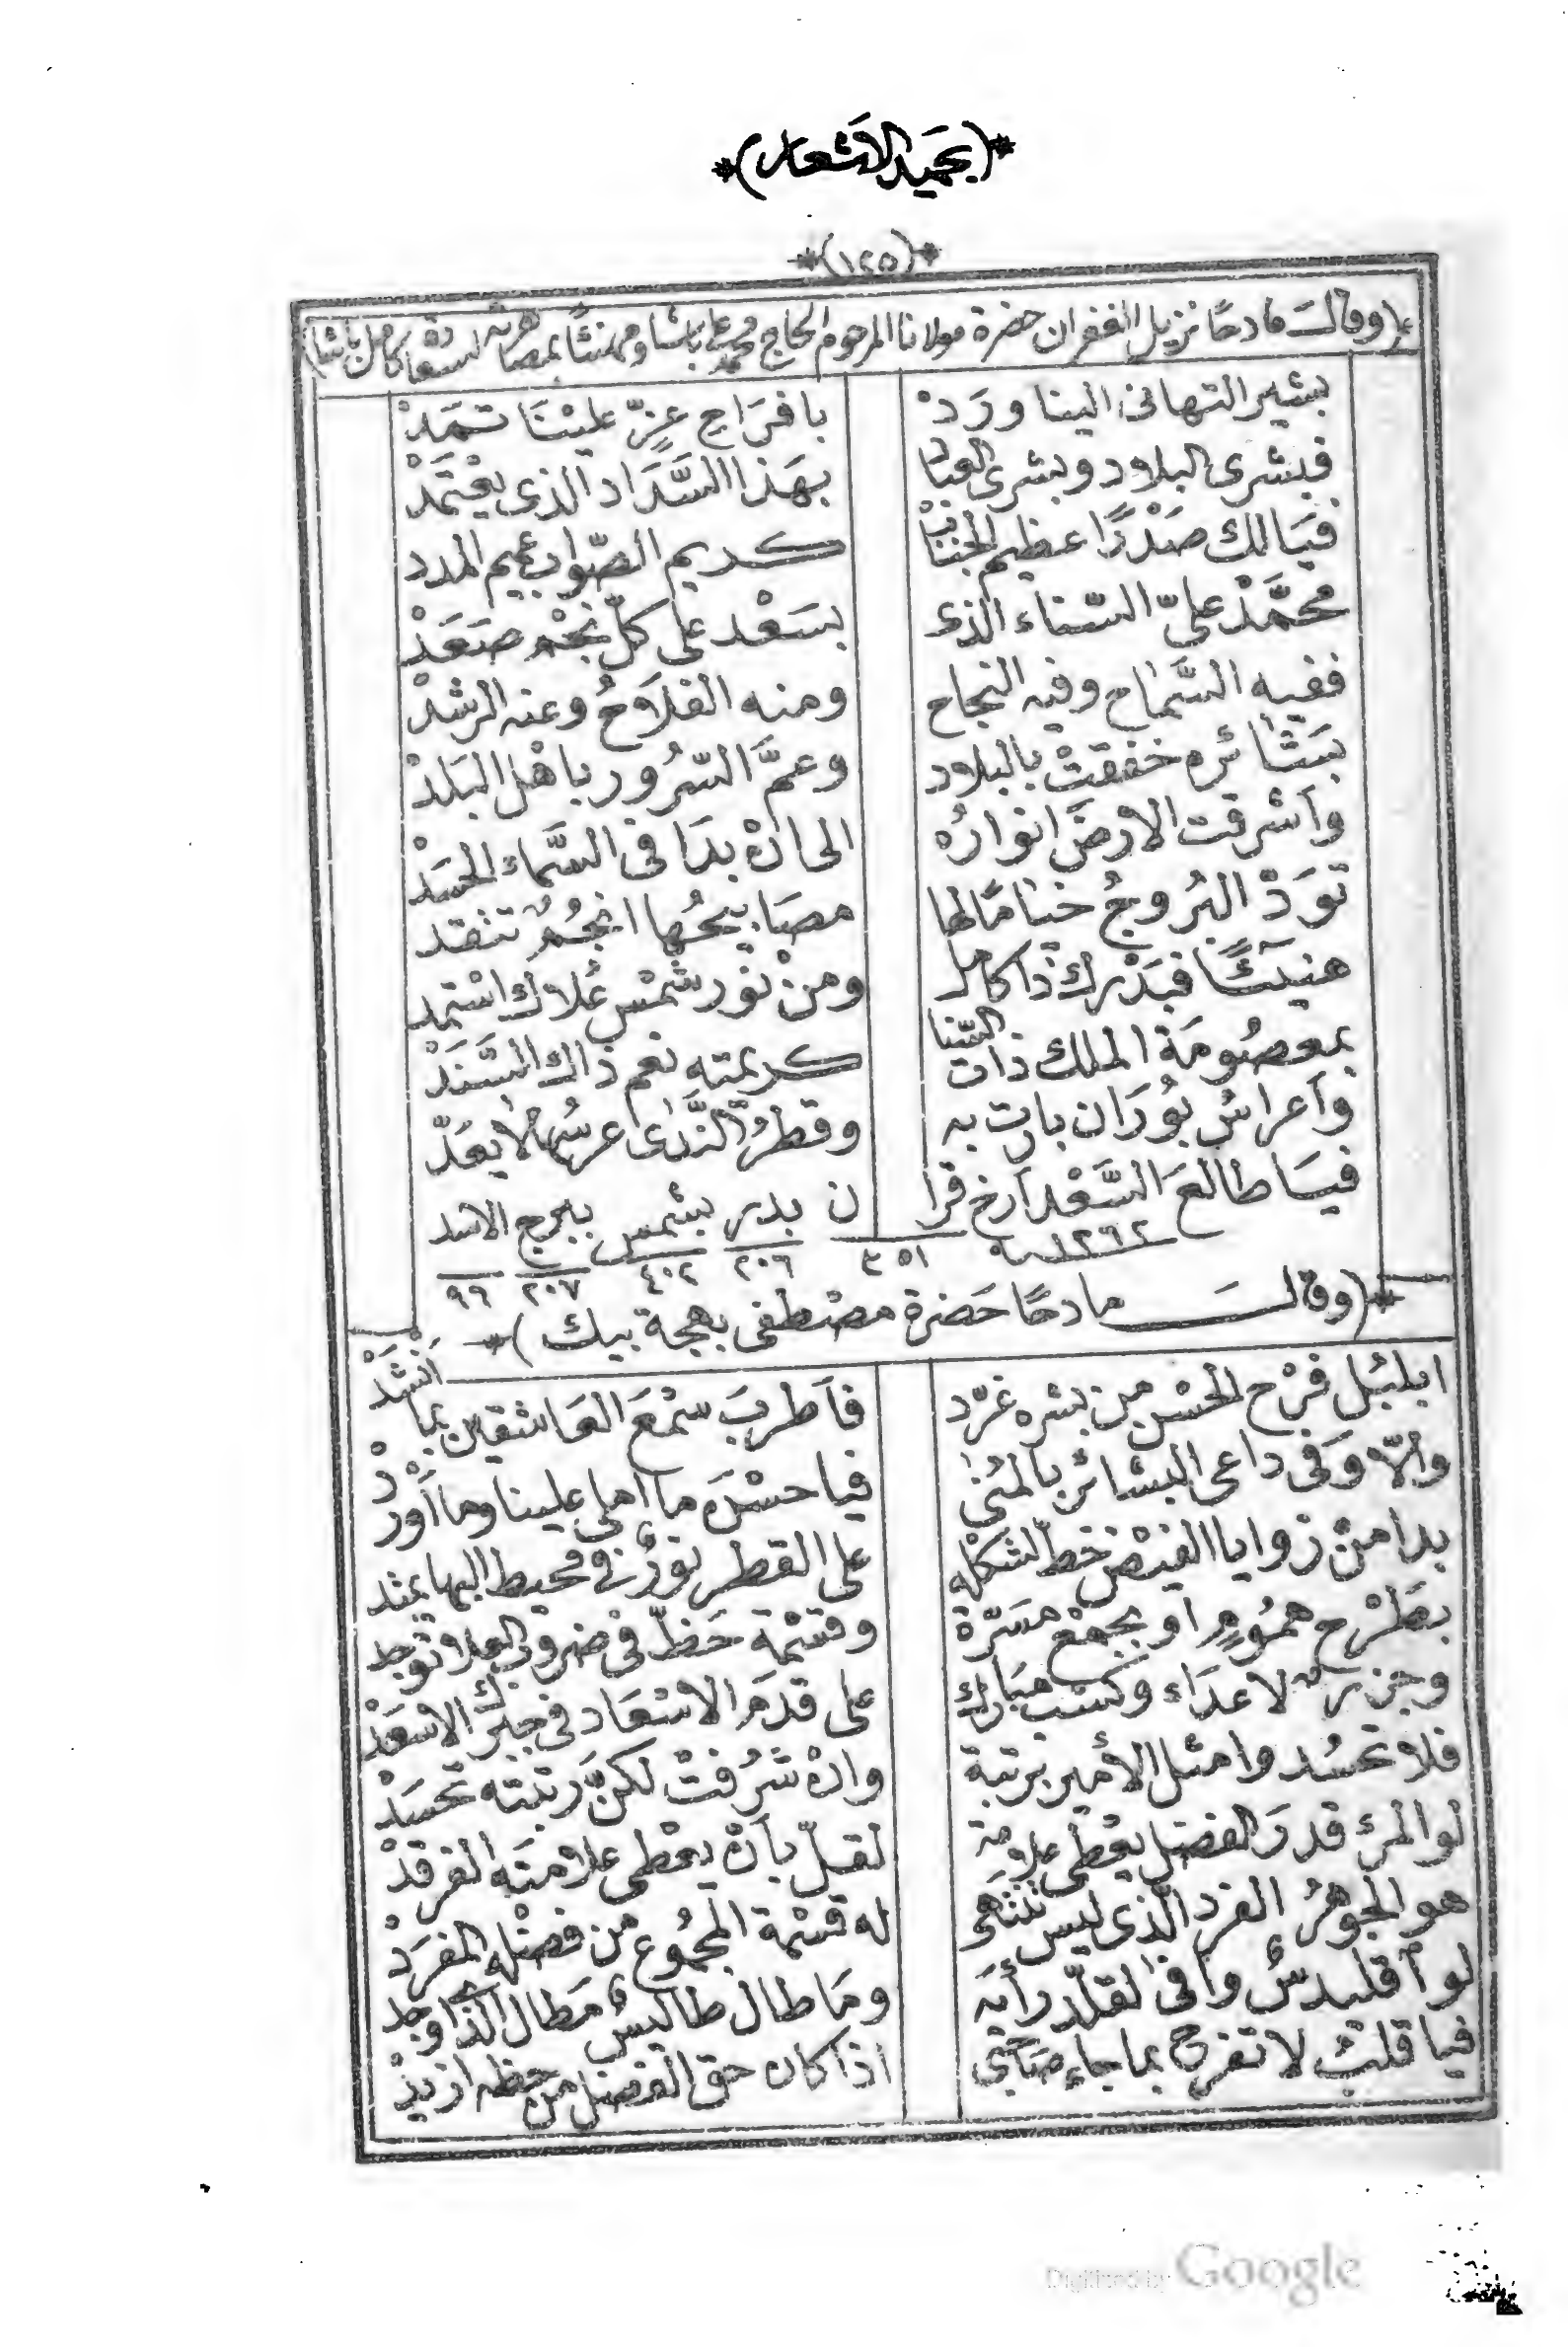 *(بحميد الاشعار)*
*(١٢٥)*
*(وقال مادحًا نزيل الغفران حضرة مولانا المرحوم الحاج محمد علي باشا ومهنئًا بمصاهرته لسعادة كامل باشا)
بشير التهانى الينا ورَدْ بافرَاحِ عزٍّ علينَا تمَدْ
فبشرى البلاد وبشرى العبادْ بهَذا السَّدَاد الذى يعْتمَدْ
فيَالك صَدْرًا عظيم الجنابْ كريم الصّواب عميم المدد
محمَّدْ علىّ السّناء الذى بسَعْد على كلّ نجْم صَعَدْ
ففيه السَّماح وفيه النجاح ومنه الفلَاحُ وعنه الرشدْ
بشَائره خفقتْ بالبلاد وعمَّ السّرُور باهْل البَلدْ
واَشرقت الارضَ انوارُه الى انْ بدَا فى السَّماء الحسَدْ
توَدّ البُروجُ خيامًا لها مصَابيحُها انجُمٌ تتقد
هنيئًا فبَدْرك ذا كامل ومنْ نوْر شمْس عُلاك اسْتمد
بمعصُومَة الملك ذات السّنا كريمته نعم ذاك السَّنَدْ
واَعراسُ بُورَان باهت به وقطرُ النَّدى عرسُها لا يعَدّ
فيَا طالعَ السَّعْد اَرخ قرا ن بدر بشمس ببرج الاسد
١٢٦٢ سنه ٣٥١ ٢٠٦ ٤٠٢ ٢٠٧ ٩٦
*(وقال مادحًا حَضرة مصْطفى بهجة بيك)*
ابلبُل فرْح الحسْن من بشره غرّد فاَطربَ سمْعَ العَاشقين بما انشَدْ
والّا وَفى داعى البشائر بالمُنى فيا حسْنَ ما املى علينا وما اَوْردْ
بدا منْ زوايا الفيْض خطّ لشكْله على القطر نورٌ فى محيط البها يمتد
بطَرْح همُومٍ اَو بجمْع مسَرّة وقسْمة حَظّ فى ضروب العلا توجد
وجزر لاعدَاء وكسْب مبَارك على قدَم الاسْعَاد فى جبْرك الاسْعَدْ
فلا تحسُدوا مثل الأمير برتبة وانْ شرُفتْ لكنّ رتبته تحسَدْ
لو المرء قدرَ الفضل يعْطى علامة لقلّ بأنْ يعْطى علامتَه الفرقدْ
هو الجوهرُ الفرد الّذى ليس ينتهى له قسْمة المجمُوع من فضْله المفرَدْ
لو اَقليدسٌ وافى لقلّد رأيَه ومَا طال طاليسٌ مَطال الذى اوجد
فيا قلبْ لا تفرح بما جاء صَاحبى اذا كان حق الفضل من حظه ازيدْ
Digitized by Google